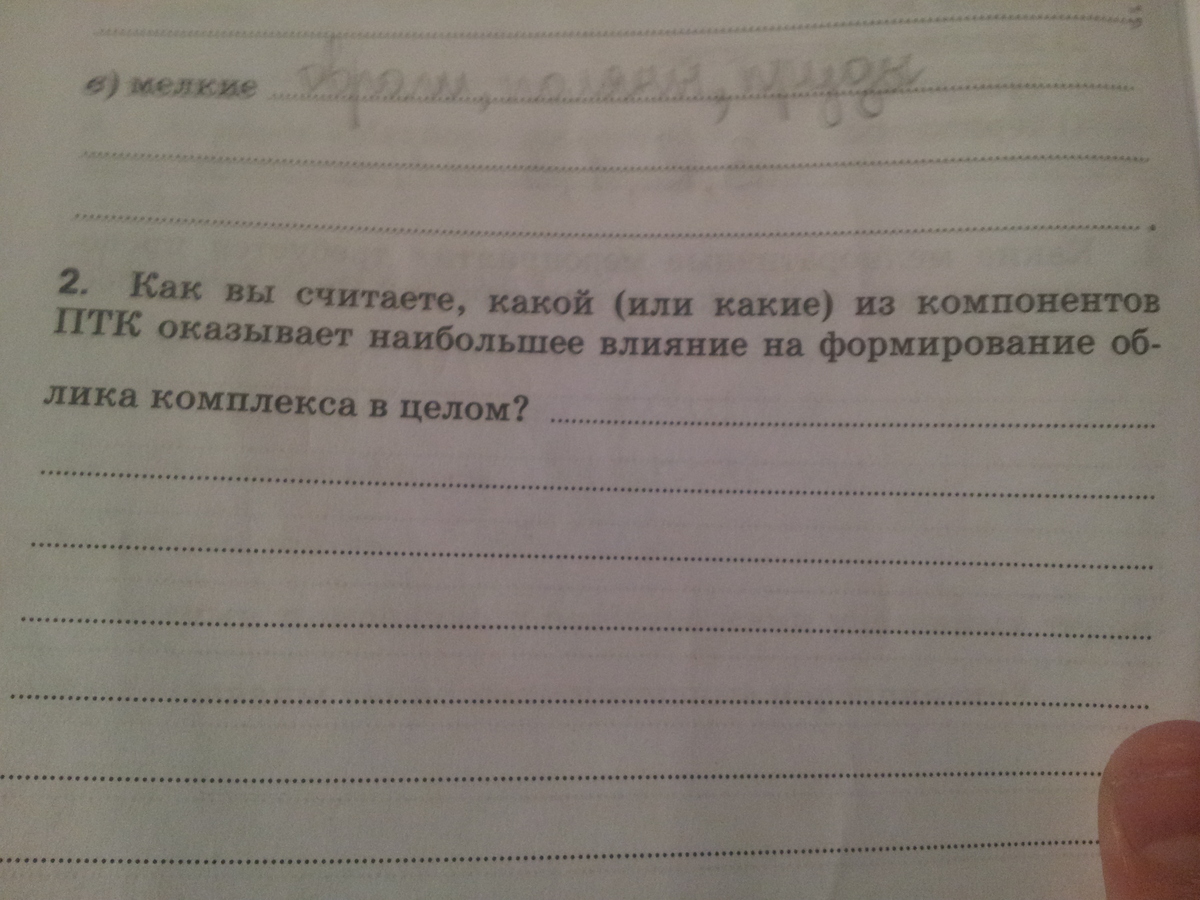 в) мелкие
2. Как вы считаете, какой (или какие) из компонентов
ПТК оказывает наибольшее влияние на формирование об-
лика комплекса в целом?